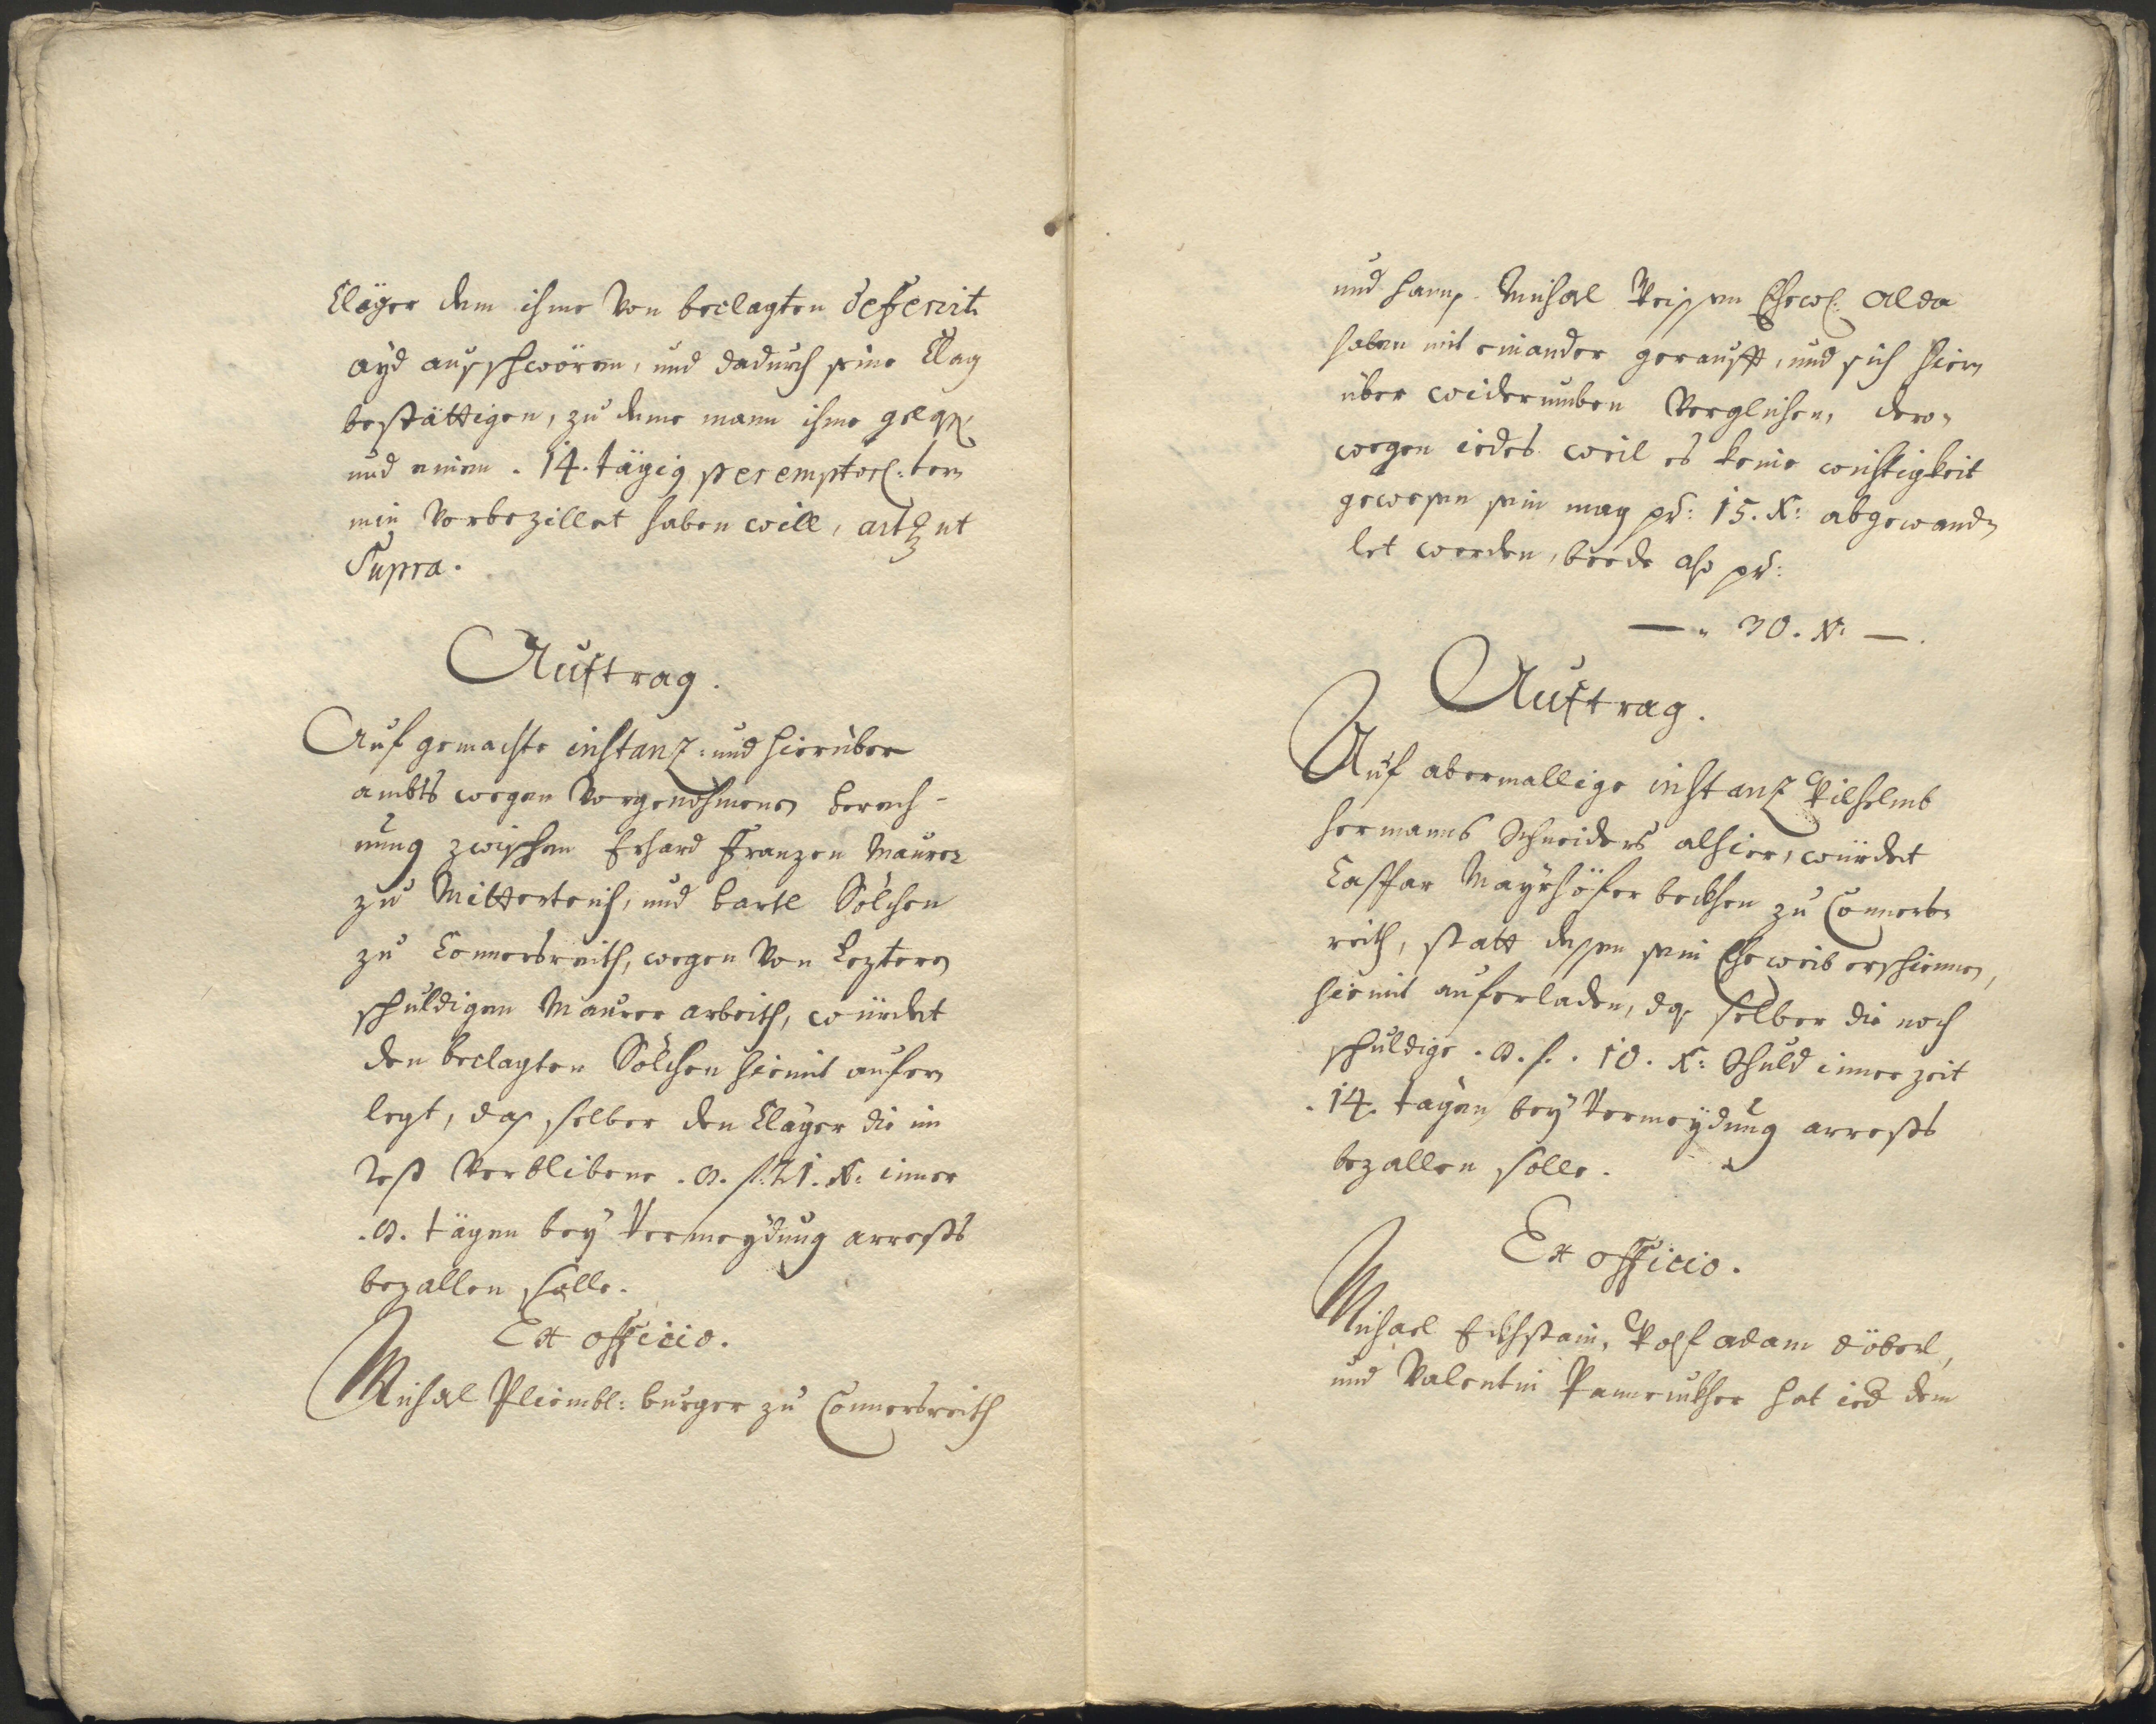 Cläger dem ihme von beclagten deferirt.
ayd ausschwören, und dadurch seine Clag
bestättigen, zu deme mann ihme gelass.
und einem . 14. tägig peremptorl: ter¬
min vorbezillet haben will, act: ut
Supra.
Auftrag.
Auf gemachte instanz: und hierüber
ambts wegen vorgenohmene berech-
nung zwischen Erhard Franzen Maurer
zu Mitterteich, und bartl Sölchen
zu Connersreith, wegen von Lezteren
schuldigen Maurer arbeith, würdet
den beclagten Sölchen hiemit aufer¬
legt, das selber den Cläger die im
Rest verblibene . 8. f. 21. X: inner
. 8. tägen bey vermeydung arrests
bezallen solle.
Ex officio.
Michael Pliembl: burger zu Connersreith
und Hanns Michael Weissen Ehew: alda
haben mit einander geraufft, und sich hier¬
über widerumben verglichen, dero¬
wegen iedes weil es keine wichtigkeit
gewesen sein mag pr: 15. X: abgewand¬
let worden, beede also pr:
— " 30. X: — .
Auftrag.
Auf abermallige instanz Wilhelmb
Hermanns Schneiders alhier, würdet
Caspar Mayrhöfer beckhen zu Conners¬
reith, statt dessen sein Eheweib erschienen,
hiemit auferladen, das selber die noch
schuldige . 8. f. . 10. X: Schuld inner zeit
. 14. tägen bey vermeydung arrests
bezallen solle.
Ex officio.
Michael Eckhstain, Wolf adam döberl,
und Valentin hat ied dem